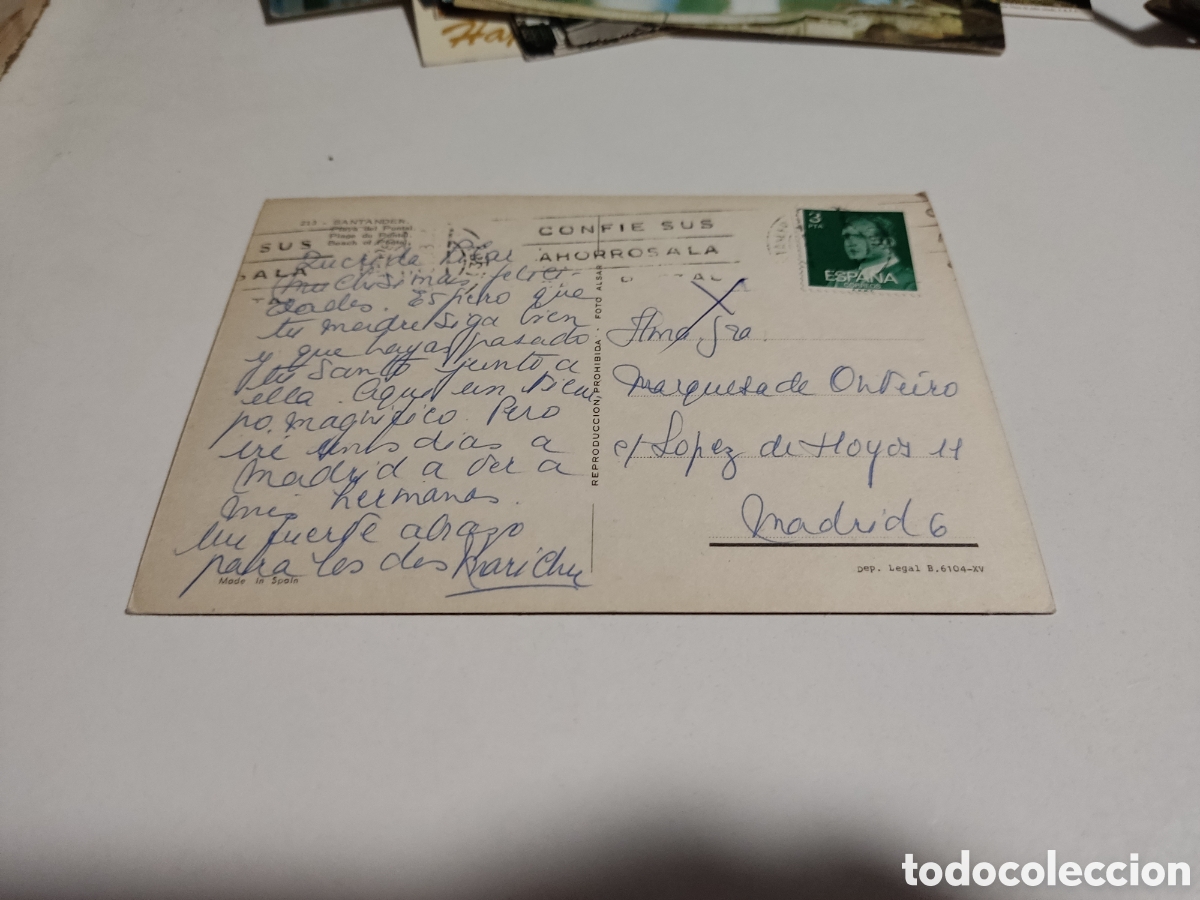 Hap
213 - SANTANDER
Playa del Puntal
Plage de Puntal
Beach of Puntal
SUS
SALA
CONFIE SUS
AHORROS A LA
POSTAL
3
PTA
ESPAÑA
Querida Pilar
Muchísimas felici-
dades. Espero que
tu madre siga bien
y que hayas pasado
tu Santo junto a
ella. Aqui un tiem
po magnifico. Pero
iré unos dias a
Madrid a ver a
mis hermanas.
Un fuerte abrazo
para los dos Marichu
Made in Spain
REPRODUCCION PROHIBIDA - FOTO ALSAR
Ilma. Sra.
Marquesa de Onteiro
c/ Lopez de Hoyos 11
Madrid 6
Dep. Legal B.6104-XV
todocoleccion